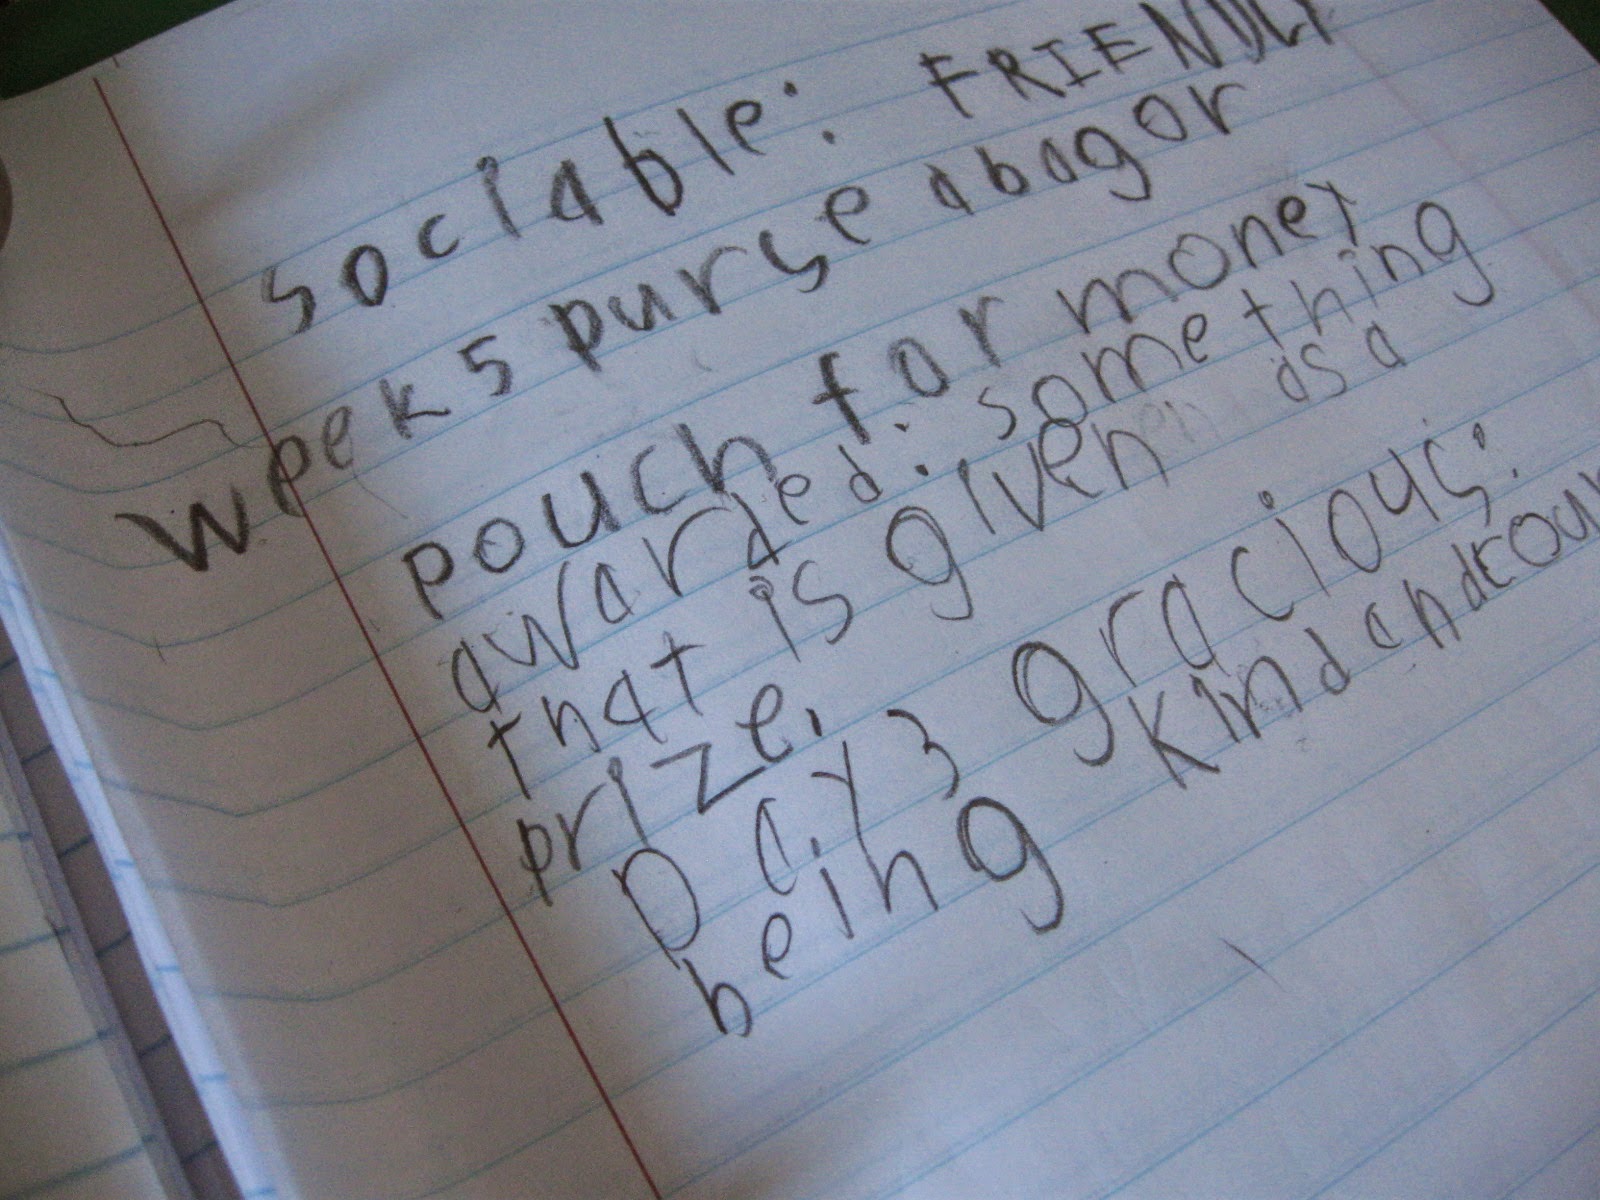 sociable: FRIENDLY
week 5 purse a bag or
pouch for money
awarded: something
that is given as a
prize.
Day 3 gracious:
being kind and